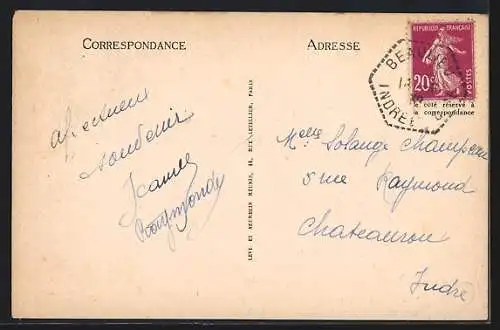 CORRESPONDANCE
ADRESSE
REPUBLIQUE FRANÇAISE
20c
POSTES
côté réservé à
la correspondance
INDRE
affectueux
souvenir
Jeanne
Raymonde
LEVY ET NEURDEIN RÉUNIS, 44, RUE LETELLIER, PARIS
Melle Solange Champeau
rue Raymond
Chateauroux
Indre